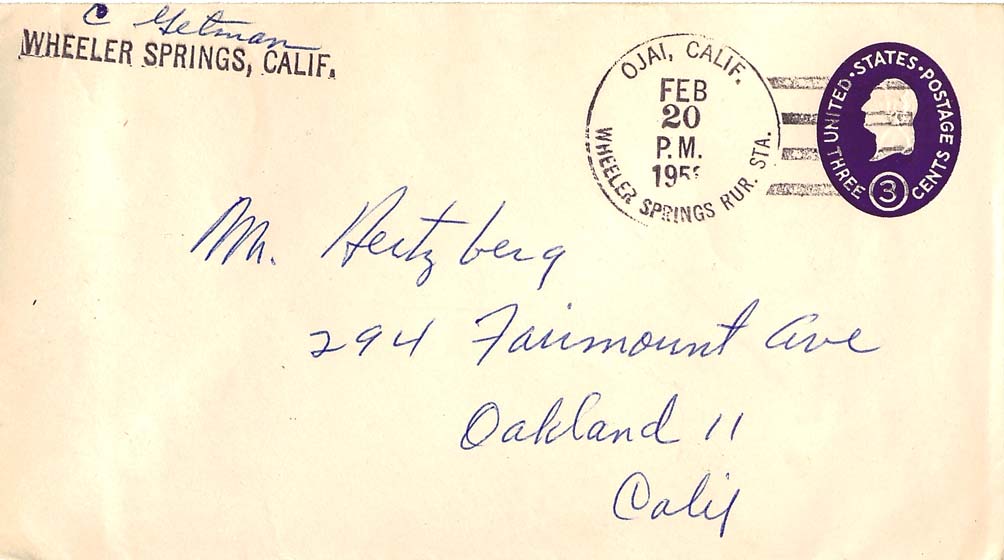 C Getman
WHEELER SPRINGS, CALIF.
OJAI, CALIF.
FEB
20
P.M.
WHEELER SPRINGS RUR. STA.
UNITED·STATES·POSTAGE
THREE 3 CENTS
Mr. Hertzberg
294 Fairmount Ave
Oakland 11
Calif